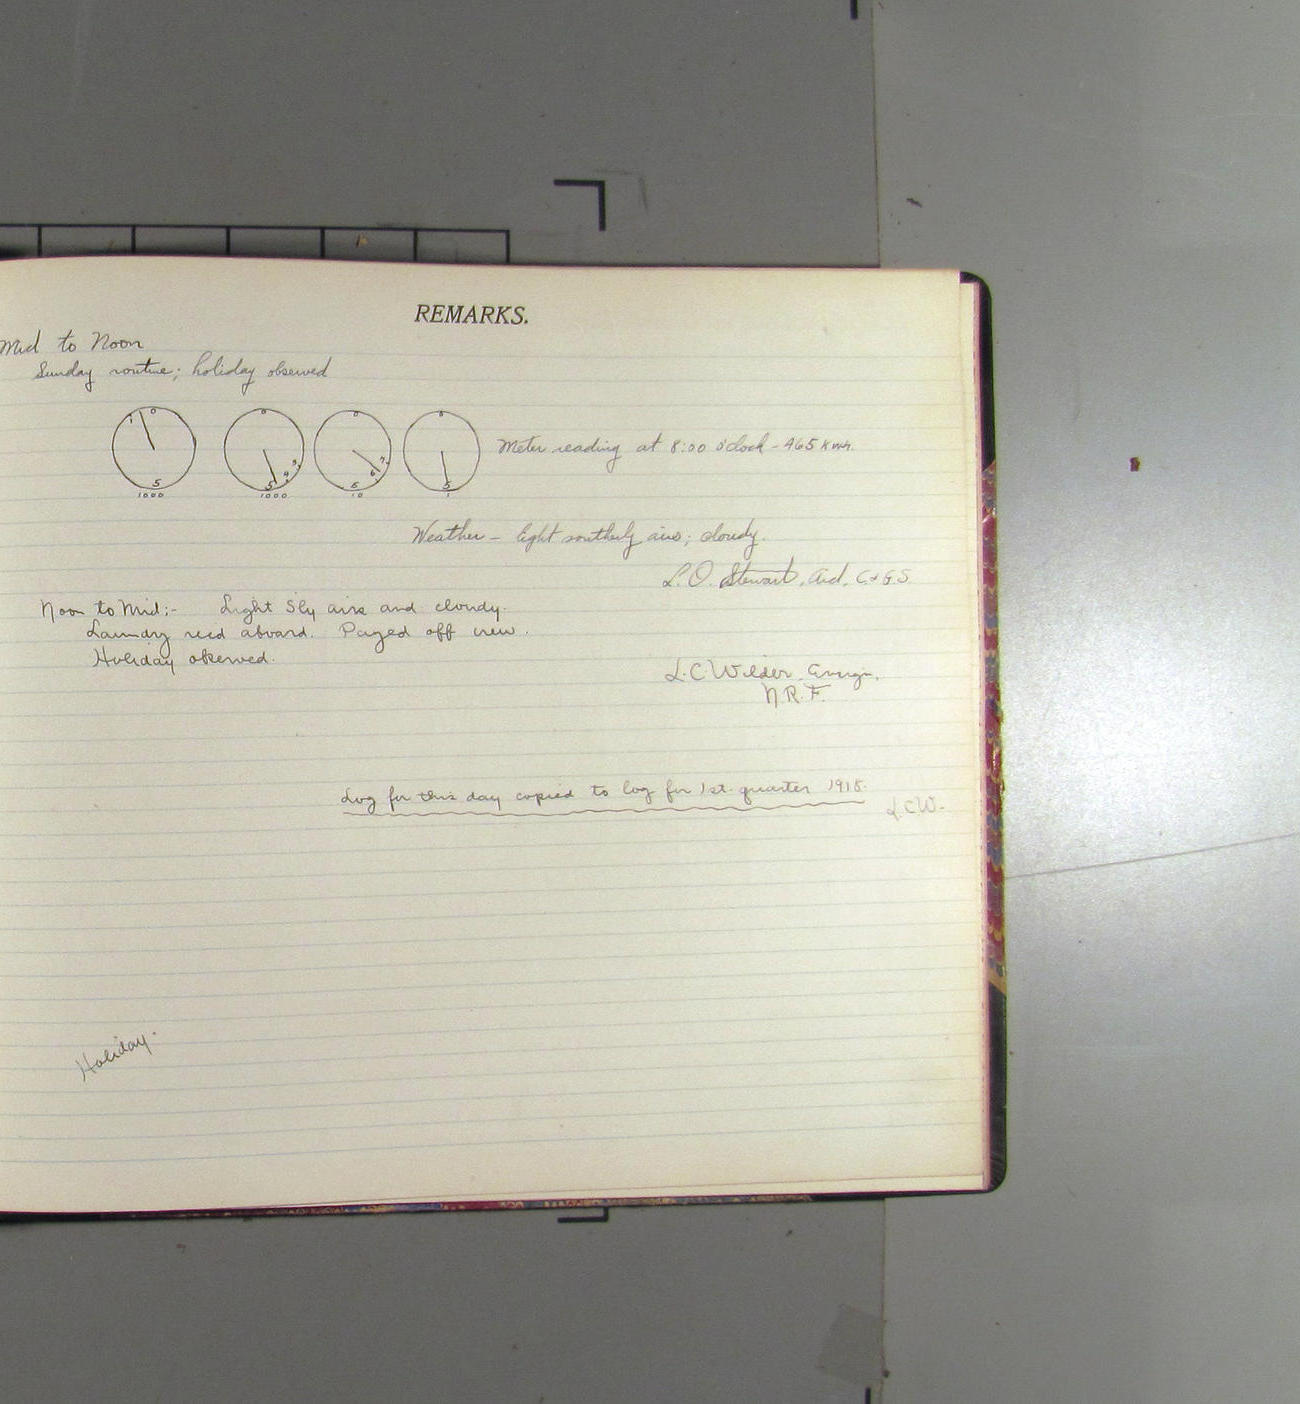 REMARKS.
Mid to Noon
Sunday routine; holiday observed
1 0
5
1000
0
3
4
5
1000
0
7
6
5
10
0
5
1
Meter reading at 8:00 o'clock - 465 K.W.H.
Weather - light southerly airs; cloudy.
L. O. Stewart, Aid, C. & G. S.
Noon to Mid:- Light S'ly airs and cloudy.
Laundry recd aboard. Payed off crew.
Holiday observed.
L. C. Wilder, Ensign,
N. R. F.
Log for this day copied to log for 1st quarter 1918.
L.C.W.
Holiday.